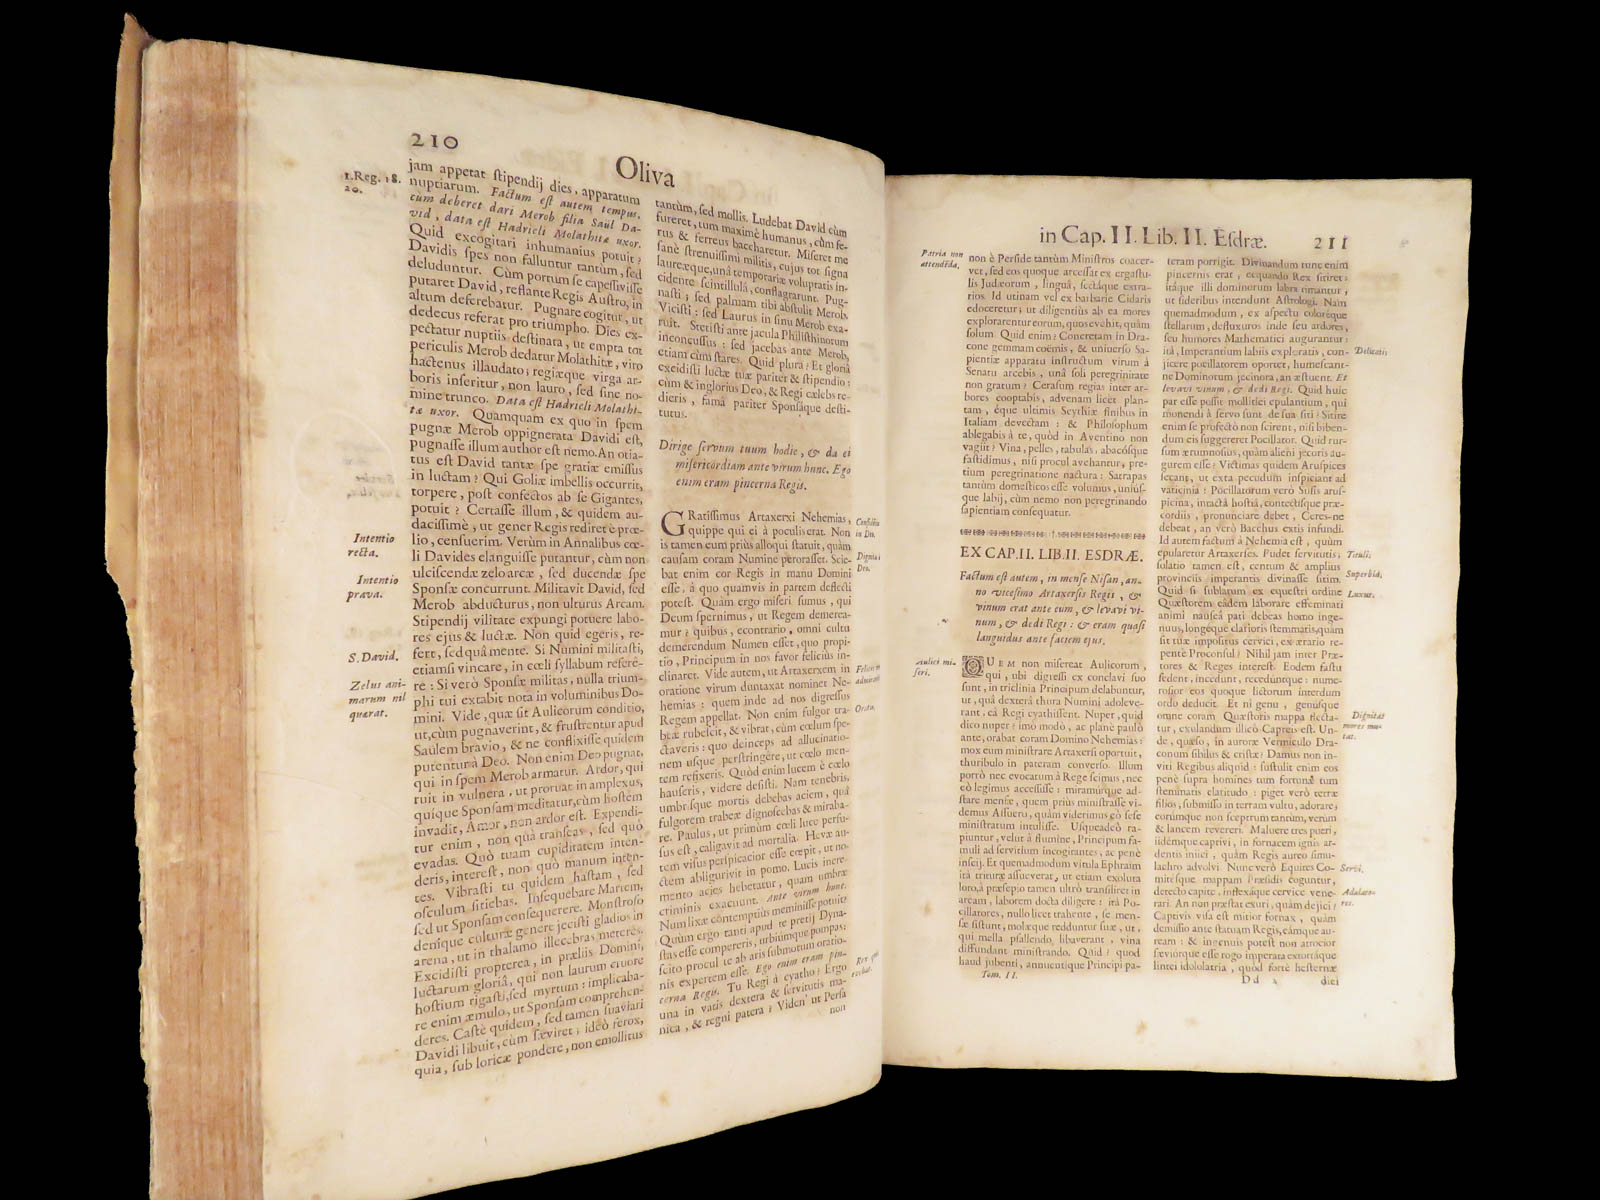 210
Oliva
1.Reg. 18.
20.
jam appetat ſtipendij dies, apparatum
nuptiarum. Factum eſt autem tempus,
cùm deberet dari Merob filia Saül Da-
vid, data eſt Hadrieli Molathitæ uxor.
Quid excogitari inhumanius potuit?
Davidis ſpes non falluntur tantùm, ſed
deluduntur. Cùm portum ſe capeſſiviſſe
putaret David, reflante Regis Auſtro, in
altum deferebatur. Pugnare cogitur, ut
dedecus referat pro triumpho. Dies ex-
pectatur nuptiis deſtinata, ut empta tot
periculis Merob dedatur Molathitæ, viro
hactenus illaudato; regiæque virga ar-
boris inſeritur, non lauro, ſed ſine no-
mine trunco. Data eſt Hadrieli Molathi-
tæ uxor. Quamquam ex quo in ſpem
pugnæ Merob oppignerata Davidi eſt,
pugnaſſe illum author eſt nemo. An otia-
tus eſt David tantæ ſpe gratiæ emiſſus
in luctam? Qui Goliæ imbellis occurrit,
torpere, poſt confectos ab ſe Gigantes,
potuit? Certaſſe illum, & quidem au-
daciſſimè, ut gener Regis rediret è præ-
lio, cenſuerim. Verùm in Annalibus cœ-
li Davides elanguiſſe putantur, cùm non
ulciſcendæ zelo arcæ, ſed ducendæ ſpe
Sponſæ concurrunt. Militavit David, ſed
Merob abducturus, non ulturus Arcam.
Stipendij vilitate expungi potuere labo-
res ejus & luctæ. Non quid egeris, re-
fert, ſed quâ mente. Si Numini militaſti,
etiamſi vincare, in cœli ſyllabum referè-
re: Si verò Sponſæ militas, nulla trium-
phi tui extabit nota in voluminibus Do-
mini. Vide, quæ ſit Aulicorum conditio,
ut, cùm pugnaverint, & fruſtrentur apud
Saülem bravio, & ne conflixiſſe quidem
putentur à Deo. Non enim Deo pugnat,
qui in ſpem Merob armatur. Ardor, qui
ruit in vulnera, ut proruat in amplexus,
quique Sponſam meditatur, cùm hoſtem
invadit, Amor, non ardor eſt. Expendi-
tur enim, non quà tranſeas, ſed quò
evadas. Quò tuam cupiditatem inten-
deris, intereſt, non quò manum inten-
tes. Vibraſti tu quidem haſtam, ſed
oſculum ſitiebas. Inſequebare Martem,
ſed ut Sponſam conſequerere. Monſtroſo
denique culturæ genere jeciſti gladios in
arena, ut in thalamo illecebras meteres.
Excidiſti propterea, in præliis Domini,
luctarum gloriâ, qui non laurum cruore
hoſtium rigaſti, ſed myrtum: implicaba-
re enim æmulo, ut Sponſam comprehen-
deres. Caſtè quidem, ſed tamen ſuaviari
Davidi libuit, cùm ſæviret; ideò ferox,
quia, ſub loricæ pondere, non emollitus
Intentio
recta.
Intentio
prava.
S. David.
Zelus ani-
marum nil
quærat.
tantùm, ſed mollis. Ludebat David cùm
fureret, tum maximè humanus, cùm fe-
rus & ferreus baccharetur. Miſeret me
ſanè ſtrenuiſſimi militis, cujus tot ſigna
laureæque, unâ temporariæ voluptatis in-
cidente ſcintillulâ, conflagrarunt. Pug-
naſti; ſed palmam tibi abſtulit Merob.
Viciſti: ſed Laurus in ſinu Merob exa-
ruit. Stetiſti ante jacula Philiſthinorum
inconcuſſus: ſed jacebas ante Merob,
etiam cùm ſtares. Quid plura? Et gloriâ
excidiſti luctæ tuæ pariter & ſtipendio:
cùm & inglorius Deo, & Regi cælebs re-
dieris, famâ pariter Sponſâque deſti-
tutus.
Dirige ſervum tuum hodie, & da ei
miſericordiam ante virum hunc. Ego
enim eram pincerna Regis.
GRatiſſimus Artaxerxi Nehemias,
quippe qui ei à poculis erat. Non
is tamen eum priùs alloqui ſtatuit, quàm
cauſam coram Numine peroraſſet. Scie-
bat enim cor Regis in manu Domini
eſſe, à quo quamvis in partem deflecti
poteſt. Quàm ergo miſeri ſumus, qui
Deum ſpernimus, ut Regem demerea-
mur? quibus, econtrario, omni cultu
demerendum Numen eſſet, quo propi-
tio, Principum in nos favor feliciùs in-
clinaret. Vide autem, ut Artaxerxem in
oratione virum duntaxat nominet Ne-
hemias: quem inde ad nos digreſſus
Regem appellat. Non enim fulgor tra-
beæ rubeſcit, & vibrat, cùm cœlum ſpe-
ctaveris: quo deinceps ad allucinatio-
nem uſque perſtringêre, ut cœlo men-
tem refixeris. Quòd enim lucem è cœlo
hauſeris, videre deſiſti. Nam tenebris,
umbriſque mortis debebas aciem, quâ
fulgorem trabeæ dignoſcebas & miraba-
re. Paulus, ut primùm cœli luce perfu-
ſus eſt, caligavit ad mortalia. Hevæ au-
tem viſus perſpicacior eſſe cœpit, ut no-
ctem abligurivit in pomo. Lucis incre-
mento acies hebetatur, quam umbræ
criminis exacuunt. Ante virum hunc.
Num lixæ contemptius meminiſſe potuit?
Quùm ergo tanti apud te pretij Dyna-
ſtas eſſe compereris, urbiúmque pompas;
ſcito procul te ab atis ſubmotum oratio-
nis expertem eſſe. Ego enim eram pin-
cerna Regis. Tu Regi à cyatho? Ergo
una in vatis dextera & ſervitutis ma-
nica, & regni patera? Viden' ut Perſa
non
in Deo.
Dignitas
Deo.
Oratio.
in Cap. II. Lib. II. Eſdræ.
211
Patria non
attendẽda.
non è Perſide tantùm Miniſtros coacer-
vet, ſed eos quoque arceſſat ex ergaſtu-
lis Judæorum, linguâ, ſectâque extra-
rios. Id utinam vel ex barbarie Cidaris
edoceretur; ut diligentiùs ab ea mores
explorarentur eorum, quos evehit, quàm
ſolum. Quid enim? Concretam in Dra-
cone gemmam coëmis, & univerſo Sa-
pientiæ apparatu inſtructum virum à
Senatu arcebis, unâ ſoli peregrinitate
non gratum? Ceraſum regias inter ar-
bores cooptabis, advenam licet plan-
tam, éque ultimis Scythiæ finibus in
Italiam devectam: & Philoſophum
ablegabis à te, quòd in Aventino non
vagiit? Vina, pelles, tabulas, abacóſque
faſtidimus, niſi procul avehantur, pre-
tium peregrinatione nactura: Satrapas
tantùm domeſticos eſſe volumus, uniúſ-
que labij, cùm nemo non peregrinando
ſapientiam conſequatur.
EX CAP. II. LIB. II. ESDRÆ.
Factum eſt autem, in menſe Niſan, an-
no viceſimo Artaxerſis Regis, &
vinum erat ante eum, & levavi vi-
num, & dedi Regi: & eram quaſi
languidus ante faciem ejus.
Aulici mi-
ſeri.
QUEM non miſereat Aulicorum,
qui, ubi digreſſi ex conclavi ſuo
ſunt, in triclinia Principum delabuntur,
ut, quâ dexterâ thura Numini adoleve-
rant, eâ Regi cyathiſſent. Nuper, quid
dico nuper? imò modò, ac planè paulò
ante, orabat coram Domino Nehemias:
mox eum miniſtrare Artaxerſi oportuit,
thuribulo in pateram converſo. Illum
porrò nec evocatum à Rege ſcimus, nec
eò legimus acceſſiſſe: miramúrque ad-
ſtare menſæ, quem priùs miniſtraſſe vi-
demus Aſſuero, quàm viderimus eò ſeſe
miniſtratum intuliſſe. Uſqueadeò ra-
piuntur, velut à flumine, Principum fa-
muli ad ſervitium incogitantes, ac penè
inſcij. Et quemadmodum vitula Ephraim
ità triturâ aſſueverat, ut etiam exoluta
loro, à præſepio tamen ultrò tranſiliret in
aream, laborem docta diligere: ità Po-
cillatores, nullo licet trahente, ſe men-
ſæ ſiſtunt, molæque redduntur ſuæ, ut,
qui mella pſallendo, libaverant, vina
diffundant miniſtrando. Quid? quod
haud jubenti, annuentique Principi pa-
Tom. II.
teram porrigit. Divinandum tunc enim
pincernis erat, ecquando Rex ſitiret:
itáque illi dominorum labra rimantur,
ut ſideribus intendunt Aſtrologi. Nam
quemadmodum, ex aſpectu coloréque
ſtellarum, defluxuros inde ſeu ardores,
ſeu humores Mathematici augurantur:
ità, Imperantium labiis exploratis, con-
jicere pocillatorem oportet, humeſcant-
ne Dominotum jecinora, an æſtuent. Et
levavi vinum, & dedi Regi. Quid huic
par eſſe poſſit mollitiei epulantium, qui
monendi à ſervo ſunt de ſua ſiti? Sitire
enim ſe profectò non ſcirent, niſi biben-
dum eis ſuggereret Pocillator. Quid rur-
ſum ærumnoſius, quàm alieni jecoris au-
gurem eſſe? Victimas quidem Aruſpices
ſecant, ut exta pecudum inſpiciant ad
vaticinia: Pocillatorum verò Suſis aruſ-
picina, intactâ hoſtiâ, contectiſque præ-
cordiis, pronunciare debet, Ceres-ne
debeat, an verò Bacchus extis infundi.
Id autem factum à Nehemia eſt, quùm
epularetur Artaxerſes. Pudet ſervitutis;
ſolatio tamen eſt, centum & amplius
provinciis imperantis divinaſſe ſitim.
Quid ſi ſublatum ex equeſtri ordine
Quæſtorem eâdem laborare effeminati
animi nauſeâ pati debeas homo inge-
nuus, longéque clarioris ſtemmatis, quàm
ſit tuæ impoſitus cervici, ex ærario re-
pentè Proconſul? Nihil jam inter Præ-
tores & Reges intereſt. Eodem faſtu
ſedent, incedunt, recedúntque: nume-
roſior eos quoque lictorum interdum
ordo deducit. Et ni genu, genúſque
omne coram Quæſtoris mappa flecta-
tur, exulandum illicò Capreis eſt. Un-
de, quæſo, in auroræ Vermiculo Dra-
conum ſibilus & criſtæ? Damus non in-
viti Regibus aliquid: ſuſtulit enim eos
penè ſupra homines tum fortunæ tum
ſtemmatis claritudo: piget verò terræ
filios, ſubmiſſo in terram vultu, adorare;
eorúmque non ſceptrum tantùm, verùm
& lancem revereri. Maluere tres pueri,
iidémque captivi, in fornacem ignis ar-
dentis iniici, quàm Regis aureo ſimu-
lachro advolvi. Nunc verò Equites Co-
mitéſque mappam Præſidis coguntur,
detecto capite, inflexâque cervice vene-
rari. An non præſtat exuri, quàm dejici?
Captivis viſa eſt mitior fornax, quàm
demiſſio ante ſtatuam Regis, eámque au-
ream: & ingenuis poteſt non atrocior
ſævióruque eſſe rogo imperata extortáque
lintei idololatria, quòd fortè heſternæ
Dd
diei
Delicati.
Tituli;
Superbia,
Luxus.
Dignitas
mores mu-
tat.
Servi.
Adulato-
res.